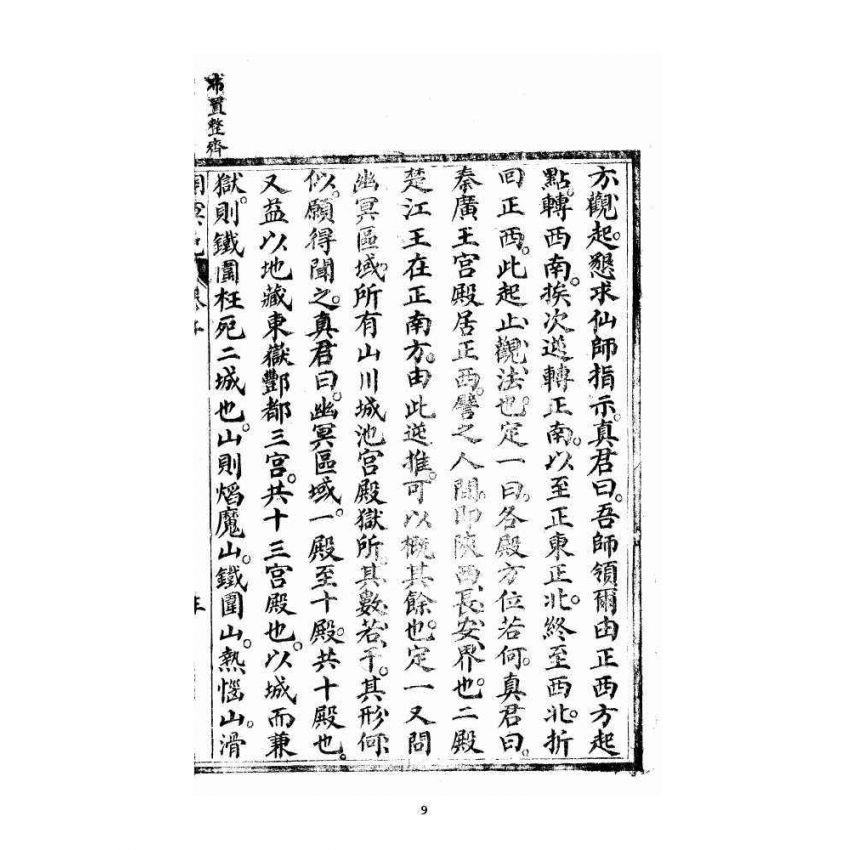 布置整齊
方觀起。懇求仙師指示。真君曰。吾師領爾由正西方起
點。轉西南。挨次逆轉正南。以至正東正北。終至西北。折
回正西。此起止觀法也。定一曰。各殿方位若何。真君曰。
秦廣王宮殿居正西。譬之人間。即陝西長安界也。二殿
楚江王在正南方。由此逆推。可以概其餘也。定一又問
幽冥區域。所有山川城池宮殿獄所。其數若干。其形何
似。願得聞之。真君曰。幽冥區域。一殿至十殿。共十殿也。
又益以地藏東嶽酆都三宮。共十三宮殿也。以城而兼
獄。則鐵圍枉死二城也。山則焰魔山。鐵圍山。熱惱山。滑
9